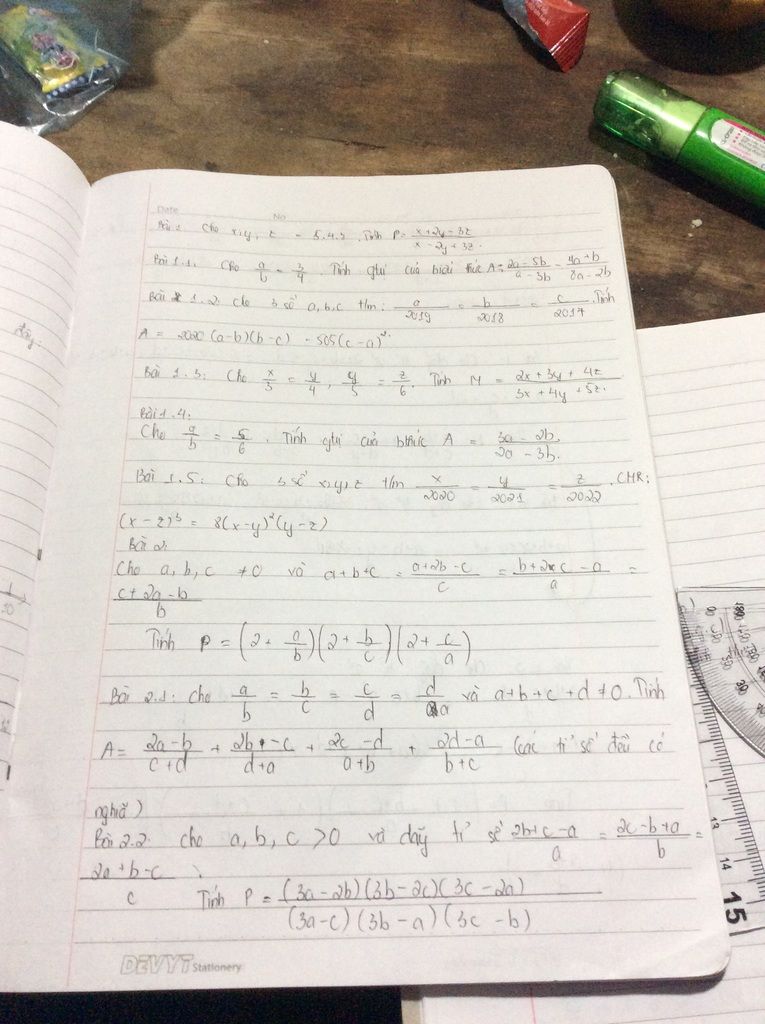 Date No
Bài 1 Cho x,y, z = 5.4.3. Tính P = \frac{x+2y-3z}{x-2y+3z}.
Bài 1.1: Cho \frac{a}{b} = \frac{3}{4} Tính gtrị của biểu thức A = \frac{2a-5b}{a-3b} - \frac{4a+b}{8a-2b}
Bài 1.2: Cho 3 số a,b,c t/m: \frac{a}{2019} = \frac{b}{2018} = \frac{c}{2017}. Tính
A = 2020 (a-b)(b-c) - 505(c-a)^2.
Bài 1.3: Cho \frac{x}{3} = \frac{y}{4}, \frac{y}{5} = \frac{z}{6}. Tính M = \frac{2x+3y+4z}{3x+4y+5z}.
Bài 1.4:
Cho \frac{a}{b} = \frac{5}{6}. Tính gtrị của bthức A = \frac{3a-2b}{2a-3b}.
Bài 1.5: Cho 3 số x,y,z t/m \frac{x}{2020} = \frac{y}{2021} = \frac{z}{2022}. CMR:
(x-z)^3 = 8(x-y)^2(y-z)
Bài 2:
Cho a, b, c ≠ 0 và a+b+c = \frac{a+2b-c}{c} = \frac{b+2c-a}{a} =
\frac{c+2a-b}{b}
Tính P = (2+\frac{a}{b})(2+\frac{b}{c})(2+\frac{c}{a})
Bài 2.1: Cho \frac{a}{b} = \frac{b}{c} = \frac{c}{d} = \frac{d}{a} và a+b+c+d ≠ 0. Tính
A = \frac{2a-b}{c+d} + \frac{2b-c}{d+a} + \frac{2c-d}{a+b} + \frac{2d-a}{b+c} (các tỉ số đều có
nghĩa)
Bài 2.2: cho a, b, c > 0 và dãy tỉ số \frac{2b+c-a}{a} = \frac{2c-b+a}{b} =
\frac{2a+b-c}{c}.
Tính P = \frac{(3a-2b)(3b-2c)(3c-2a)}{(3a-c)(3b-a)(3c-b)}
DEVYT Stationery
13
14
15